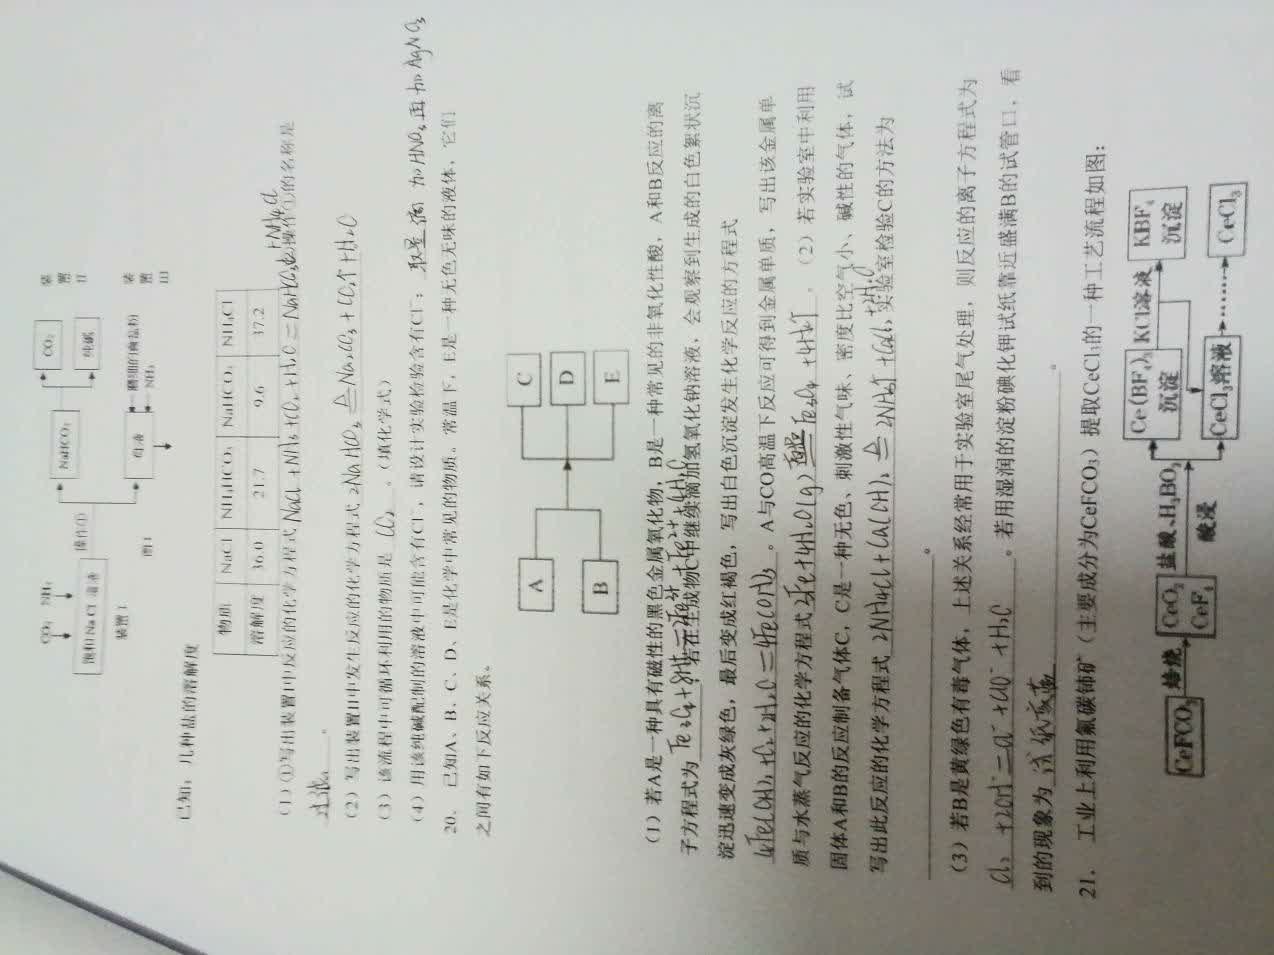 CO₂ NH₃
饱和NaCl溶液
装置I
操作①
NaHCO₃
CO₂
纯碱
装置II
母液
磨细的食盐粉
NH₃
装置III
图1
已知：几种盐的溶解度
物质 NaCl NH₄HCO₃ NaHCO₃ NH₄Cl
溶解度 36.0 21.7 9.6 37.2
（1）①写出装置I中反应的化学方程式NaCl+NH₃+CO₂+H₂O=NaHCO₃↓+NH₄Cl操作①的名称是
过滤。
（2）写出装置II中发生反应的化学方程式 2NaHCO₃ ≜ Na₂CO₃+CO₂↑+H₂O
（3）该流程中可循环利用的物质是 CO₂ 。（填化学式）
（4）用该纯碱配制的溶液中可能含有Cl⁻，请设计实验检验含有Cl⁻： 加HNO₃再加AgNO₃
20． 已知A、B、C、D、E是化学中常见的物质。常温下，E是一种无色无味的液体，它们
之间有如下反应关系。
A
B
C
D
E
（1）若A是一种具有磁性的黑色金属氧化物，B是一种常见的非氧化性酸，A和B反应的离
子方程式为 Fe₃O₄+8H⁺=2Fe³⁺+Fe²⁺+4H₂O 若在生成物C中继续滴加氢氧化钠溶液，会观察到生成的白色絮状沉
淀迅速变成灰绿色，最后变成红褐色，写出白色沉淀发生化学反应的方程式
4Fe(OH)₂+O₂+2H₂O=4Fe(OH)₃ 。A与CO高温下反应可得到金属单质，写出该金属单
质与水蒸气反应的化学方程式 3Fe+4H₂O(g) 高温 Fe₃O₄+4H₂↑ 。（2）若实验室中利用
固体A和B的反应制备气体C，C是一种无色、刺激性气味、密度比空气小、碱性的气体，试
写出此反应的化学方程式 2NH₄Cl+Ca(OH)₂ ≜ 2NH₃↑+CaCl₂+2H₂O 实验室检验C的方法为
。
（3）若B是黄绿色有毒气体，上述关系经常用于实验室尾气处理，则反应的离子方程式为
Cl₂+2OH⁻=Cl⁻+ClO⁻+H₂O 。若用湿润的淀粉碘化钾试纸靠近盛满B的试管口，看
到的现象为 试纸变 。
21． 工业上利用氟碳铈矿（主要成分为CeFCO₃）提取CeCl₃的一种工艺流程如图：
CeFCO₃
焙烧
CeO₂
CeF₄
盐酸、H₃BO₃
酸浸
Ce(BF₄)₃
沉淀
KCl溶液
KBF₄
沉淀
CeCl₃溶液
CeCl₃